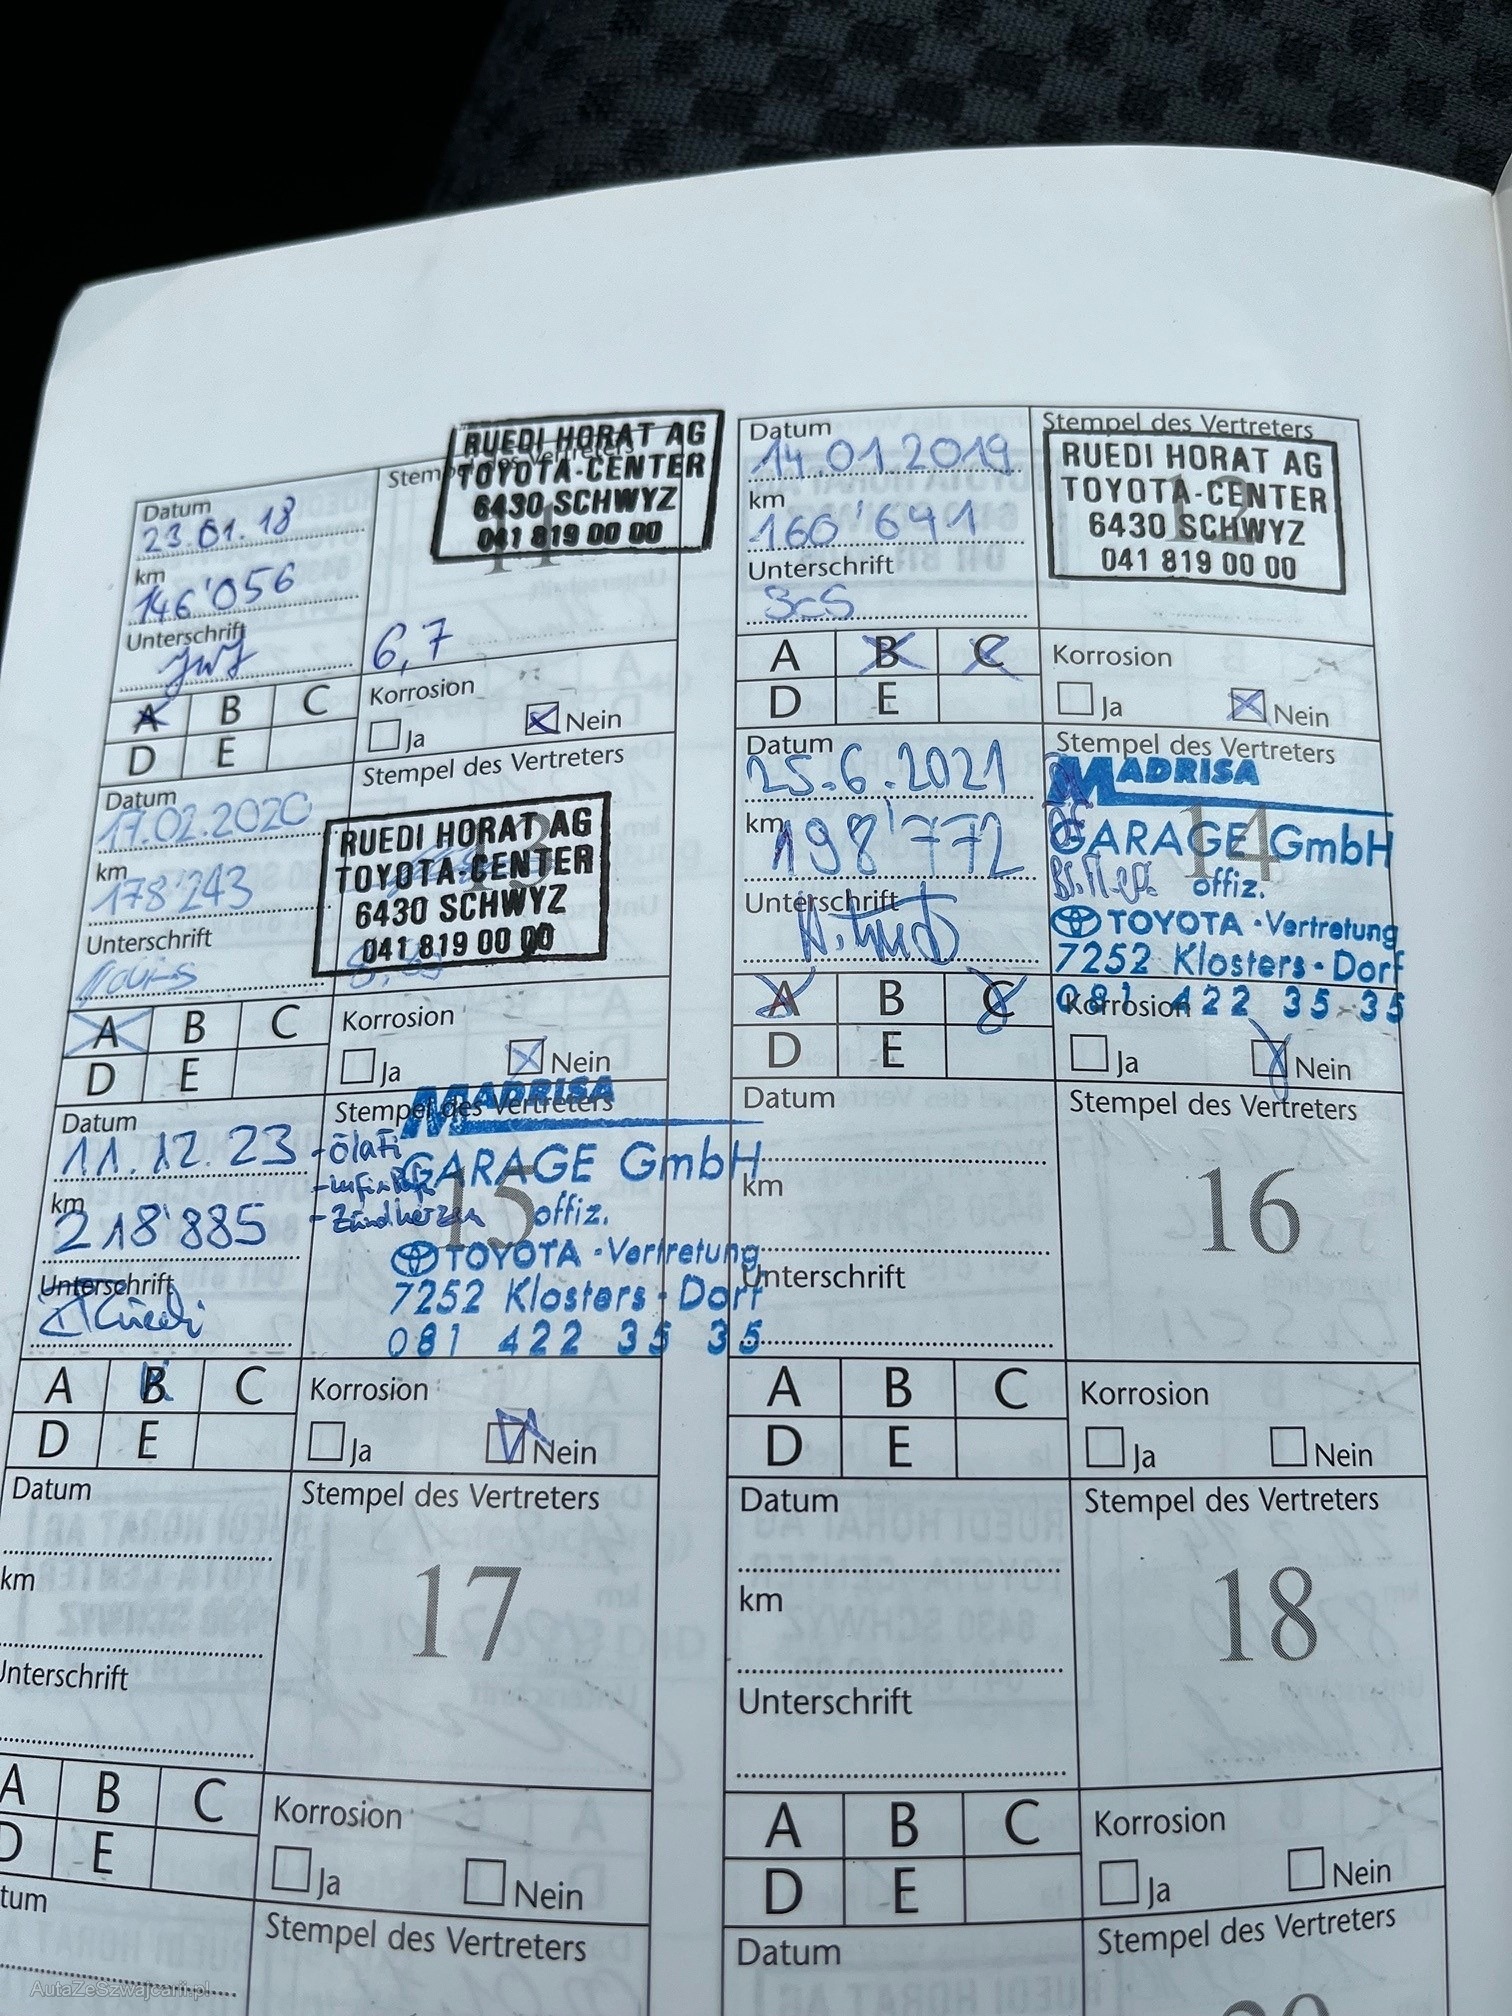 Datum
23.01.18
km
146'056
Unterschrift
Stempel des Vertreters
11
RUEDI HORAT AG
TOYOTA-CENTER
6430 SCHWYZ
041 819 00 00
6,7
A B C
D E
Korrosion
Ja Nein
Datum
14.01.2019
km
160'691
Unterschrift
Stempel des Vertreters
12
RUEDI HORAT AG
TOYOTA-CENTER
6430 SCHWYZ
041 819 00 00
A B C
D E
Korrosion
Ja Nein
Datum
17.02.2020
km
178'243
Unterschrift
Stempel des Vertreters
13
RUEDI HORAT AG
TOYOTA-CENTER
6430 SCHWYZ
041 819 00 00
A B C
D E
Korrosion
Ja Nein
Datum
25.6.2021
km
198'772
Unterschrift
Stempel des Vertreters
14
MADRISA
GARAGE GmbH
offiz.
TOYOTA-Vertretung
7252 Klosters-Dorf
081 422 35 35
A B C
D E
Korrosion
Ja Nein
Datum
11.12.23
km
218'885
Unterschrift
Stempel des Vertreters
15
MADRISA
GARAGE GmbH
offiz.
TOYOTA-Vertretung
7252 Klosters-Dorf
081 422 35 35
- Zündkerzen
A B C
D E
Korrosion
Ja Nein
Datum
km
Unterschrift
Stempel des Vertreters
16
A B C
D E
Korrosion
Ja Nein
Datum
km
Unterschrift
Stempel des Vertreters
17
A B C
D E
Korrosion
Ja Nein
Datum
km
Unterschrift
Stempel des Vertreters
18
A B C
D E
Korrosion
Ja Nein
tum
Stempel des Vertreters
Datum
Stempel des Vertreters
20
AutaZeSzwajcarii.pl